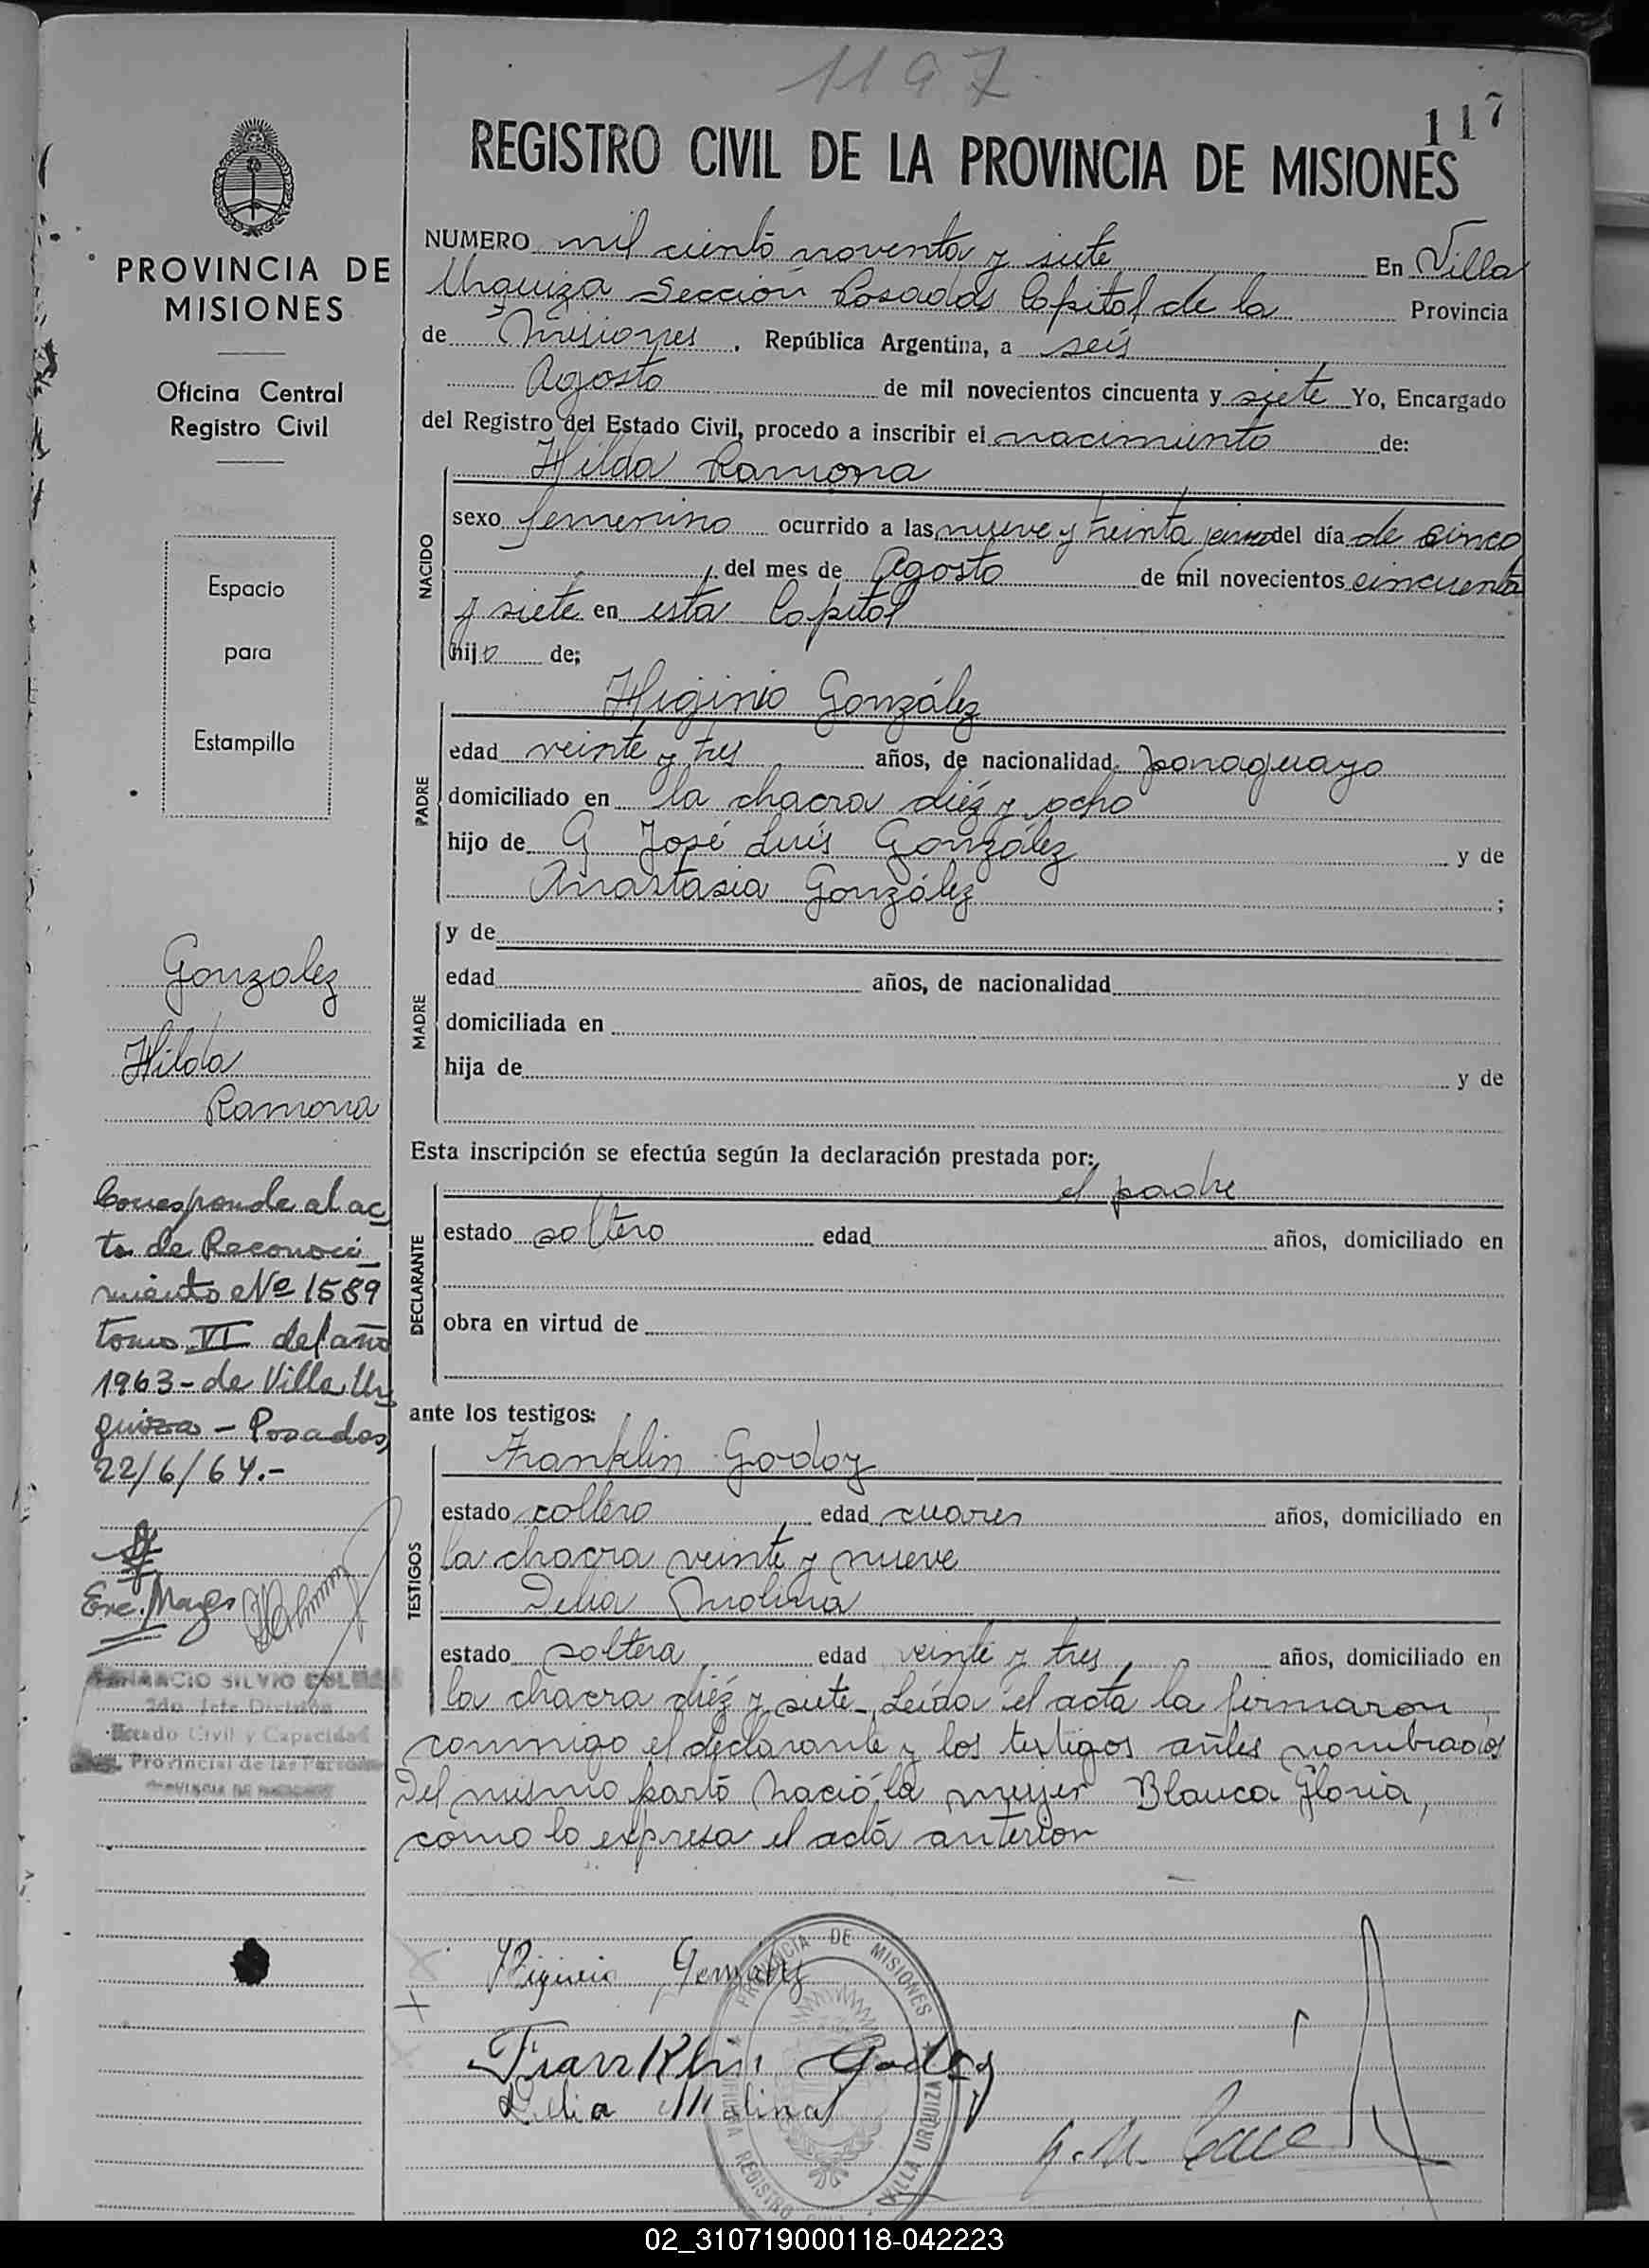 1197
117
REGISTRO CIVIL DE LA PROVINCIA DE MISIONES
PROVINCIA DE
MISIONES
Oficina Central
Registro Civil
Espacio
para
Estampilla
Gonzalez
Hilda
Ramona
Corresponde al ac
ta de Reconoci
miento Nº 1589
tomo VI del año
1963 - de Villa Ur
quiza - Posadas,
22/6/64.-
SILVIO
2do. Jefe División
Estado Civil y Capacidad
Provincial de las Personas
PROVINCIA DE MISIONES
NUMERO mil ciento noventa y siete En Villa
Urquiza Sección Posadas Capital de la Provincia
de Misiones . República Argentina, a seis
Agosto de mil novecientos cincuenta y siete Yo, Encargado
del Registro del Estado Civil, procedo a inscribir el nacimiento de:
NACIDO
Hilda Ramona
sexo femenino ocurrido a las nueve y treinta del día de cinco
del mes de Agosto de mil novecientos cincuenta
y siete en esta Capital
hijo de;
PADRE
Higinio González
edad veinte y tres años, de nacionalidad paraguayo
domiciliado en la chacra diéz y ocho
hijo de José Luís González y de
Anastasia González ;
MADRE
y de
edad años, de nacionalidad
domiciliada en
hija de y de
Esta inscripción se efectúa según la declaración prestada por:
DECLARANTE
el padre
estado soltero edad años, domiciliado en
obra en virtud de
ante los testigos:
TESTIGOS
Franklin Godoy
estado soltero edad años, domiciliado en
la chacra veinte y nueve
Delia Molina
estado soltera edad veinte y tres, años, domiciliado en
la chacra diéz y siete - Leída el acta la firmaron
conmigo el declarante y los testigos antes nombrados
Del mismo parto nació la mujer Blanca Gloria,
como lo expresa el acta anterior
Higinio González
Franklin Godoy
Delia Molina
PROVINCIA DE MISIONES
VILLA URQUIZA
REGISTRO
02_310719000118-042223